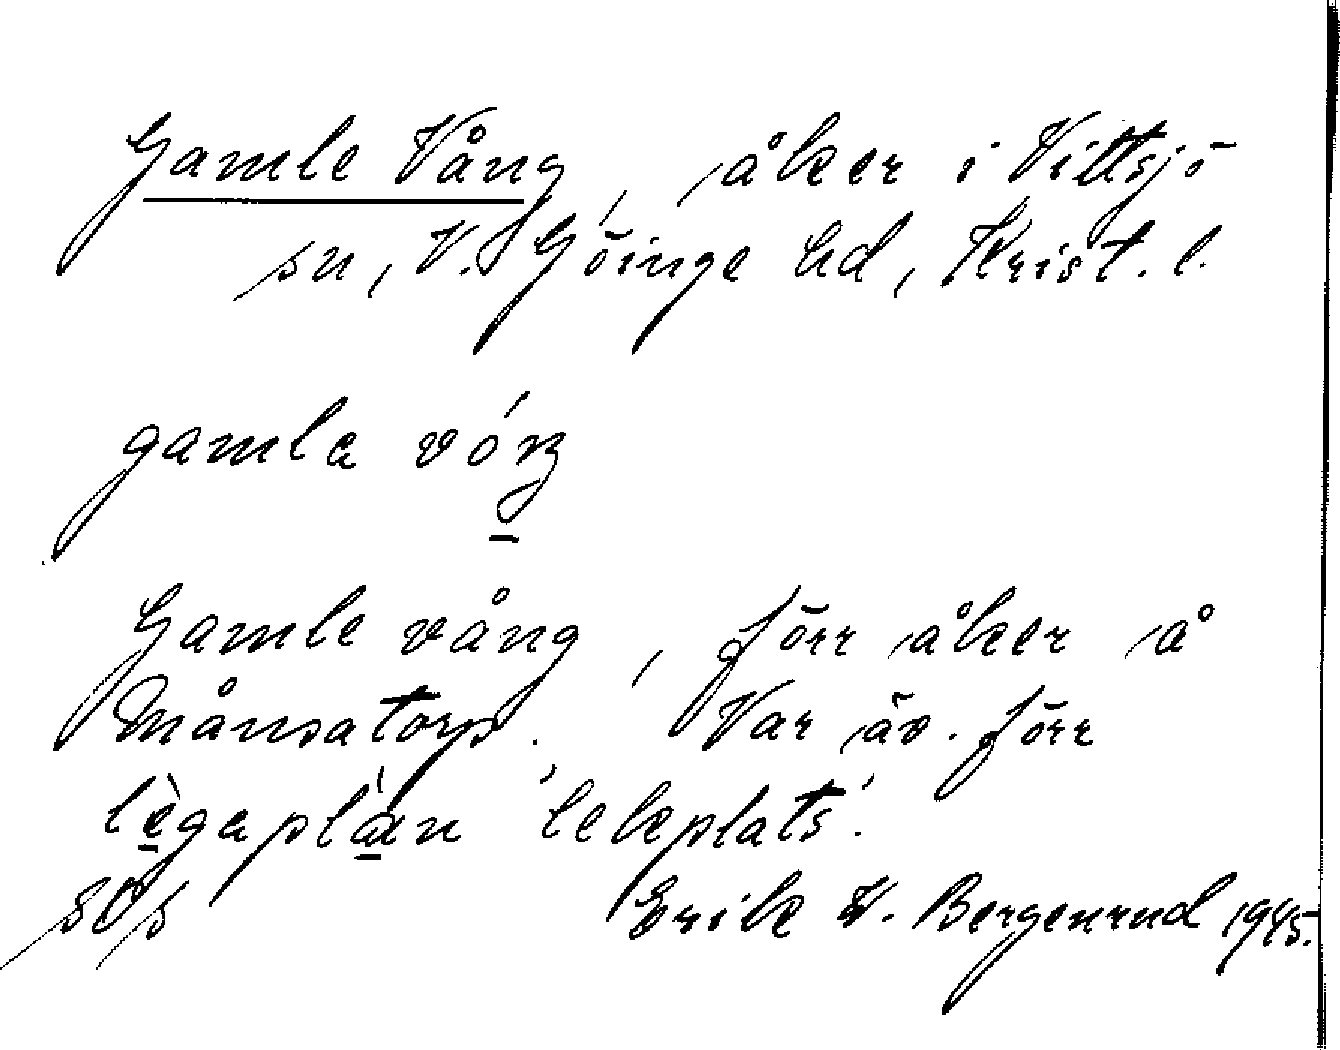 Gamle Vång, åker i Vittsjö
sn, V. Göinge hd, Krist. l.
gamla vóŋ
Gamle vång, förr åker å
Månsatorp. Var äv. förr
lègaplàn 'lekplats'.
Erik V. Bergenrud 1945.